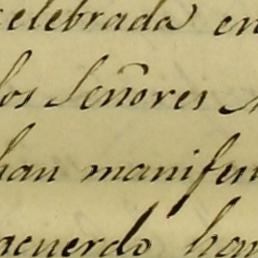 celebrada en
los Señores
han manifes
acuerdo han